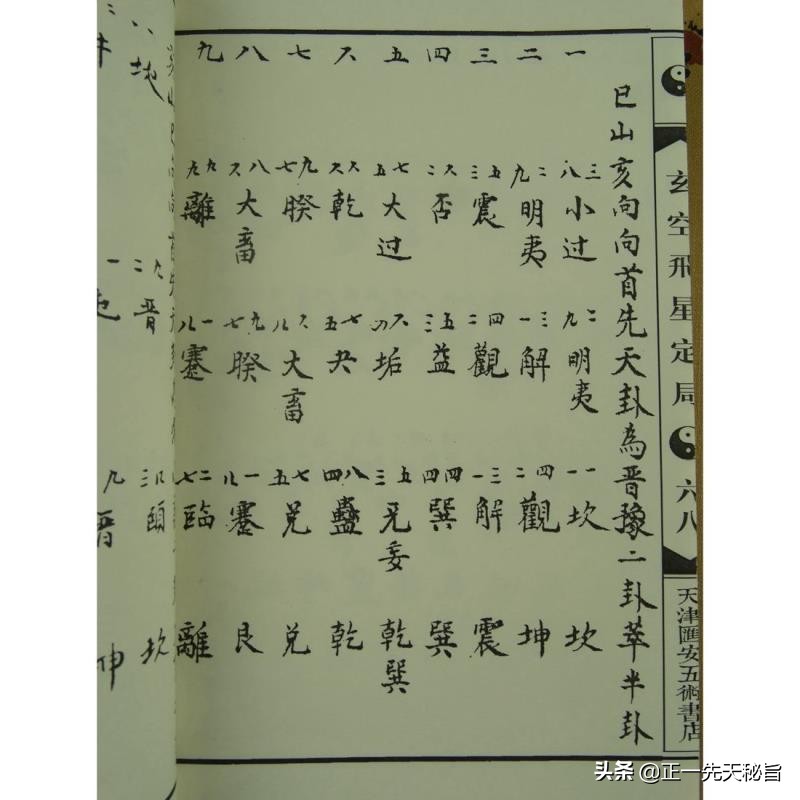 玄空飛星定局
六八
天津匯安五術書店
巳山亥向向首先天卦為晋豫二卦萃半卦
一 八三 小过 九二 明夷 一一 坎 坎
二 九二 明夷 一三 解 二四 觀 坤
三 三五 震 二四 觀 一三 解 震
四 二六 否 三五 益 四四 巽 巽
五 五七 大过 四六 垢 三五 无妄 乾巽
六 六六 乾 五七 夬 四八 蠱 乾
七 七九 睽 六八 大畜 五七 兑 兑
八 六八 大畜 七九 睽 八一 蹇 艮
九 九九 離 八一 蹇 七二 臨 離
地 晋 頤 坎
晋
头条 @正一先天秘旨